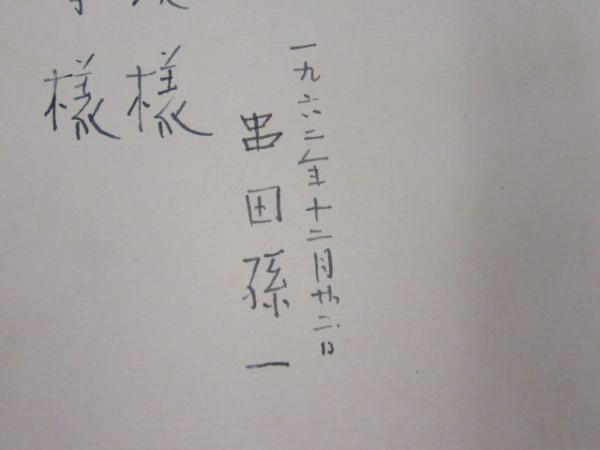 一九六二年十二月廿二日
串田孫一
様
様